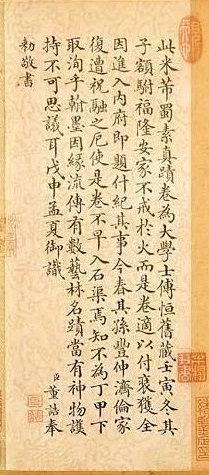 此米芾蜀素真蹟卷為大學士傅恒舊藏壬寅冬其
子額駙福隆安家不戒於火而是卷適以付裝獲全
因進入内府即題什紀其事今春其孫豐伸濟倫家
復遭祝融之厄使是卷不早入石渠焉知不為丁甲下
取洵乎翰墨因緣流傳有數藝林名蹟當有神物護
持不可思議耳戊申孟夏御識
臣董誥奉
勅敬書